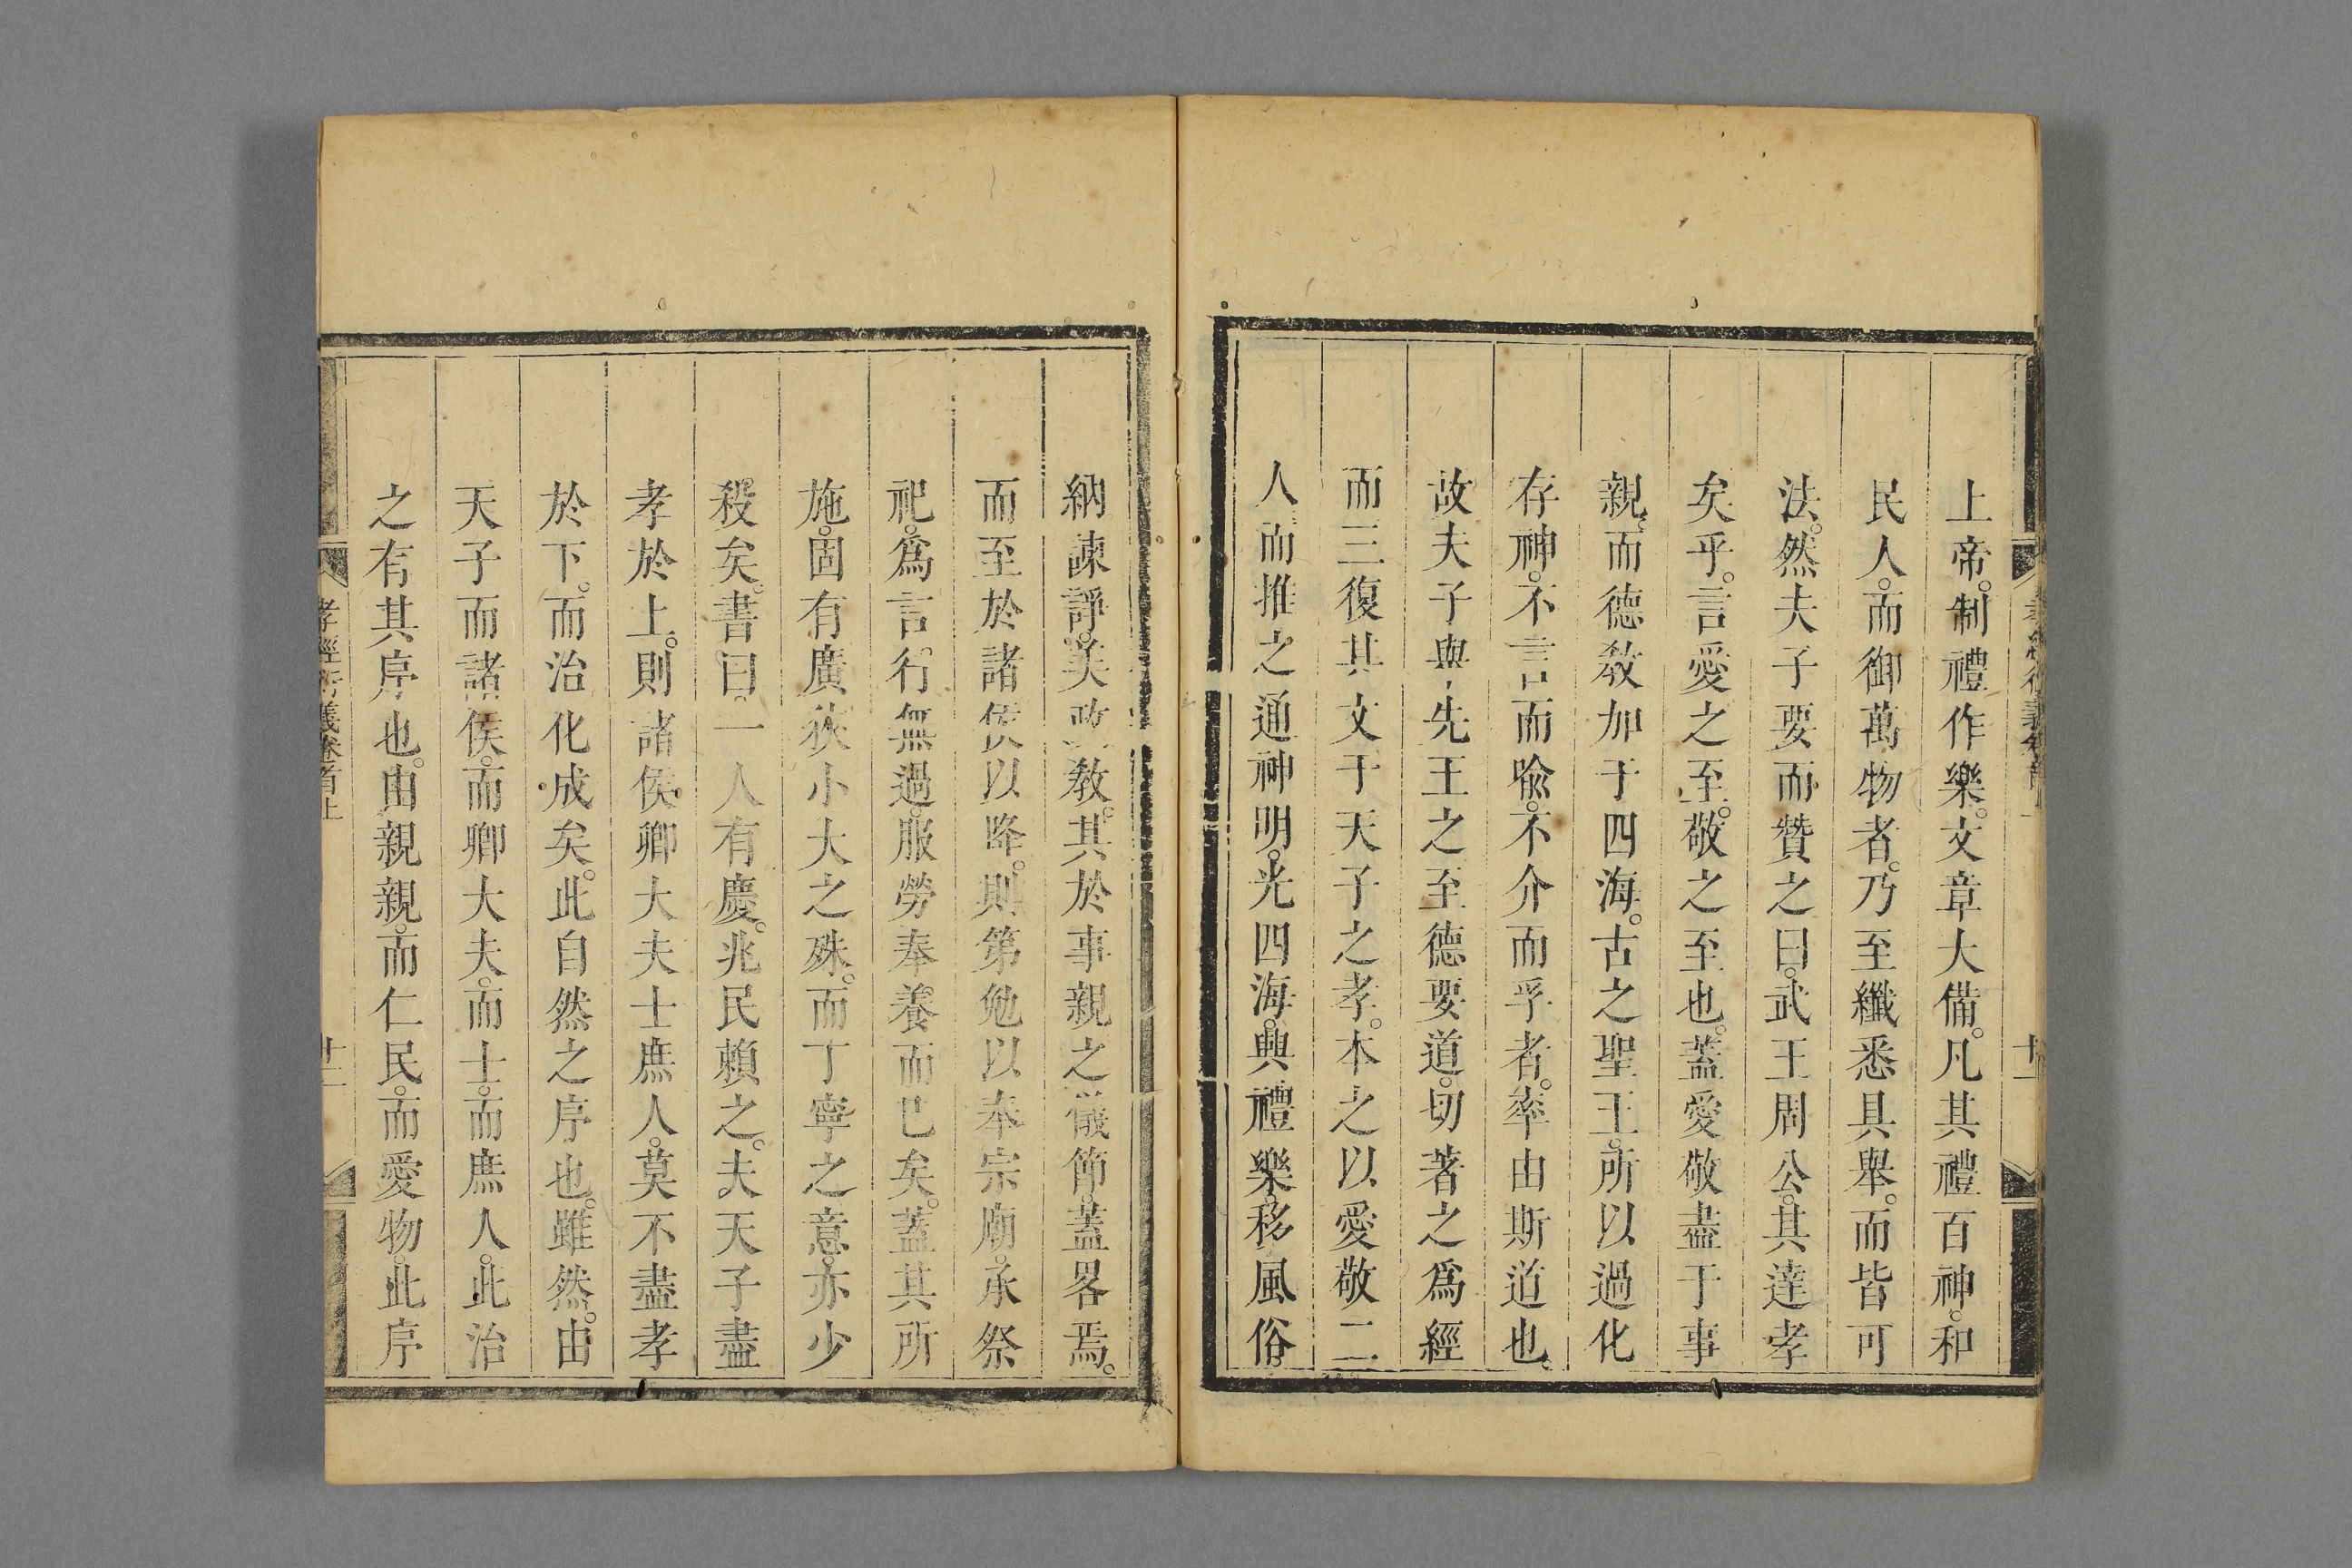 上帝。制禮作樂。文章大備。凡其禮百神。和
民人。而御萬物者。乃至纖悉具舉。而皆可
法。然夫子要而贊之曰。武王周公。其達孝
矣乎。言愛之至。敬之至也。蓋愛敬盡于事
親。而德敎加于四海。古之聖王。所以過化
存神。不言而喩。不介而孚者。率由斯道也。
故夫子與先王之至德要道。切著之爲經
而三復其文于天子之孝。本之以愛敬二
人而推之通神明。光四海。興禮樂。移風俗
納諫諍。美政敎。其於事親之儀節。蓋畧焉。
而至於諸侯以降。則第勉以奉宗廟。承祭
祀。爲言行無過。服勞奉養而已矣。蓋其所
施。固有廣狹小大之殊。而丁寧之意。亦少
殺矣。書曰。一人有慶。兆民賴之。夫天子盡
孝於上。則諸侯卿大夫士庶人。莫不盡孝
於下。而治化成矣。此自然之序也。雖然。由
天子而諸侯。而卿大夫。而士。而庶人。此治
之有其序也。由親親。而仁民。而愛物。此序
孝經衍義卷首上
十二